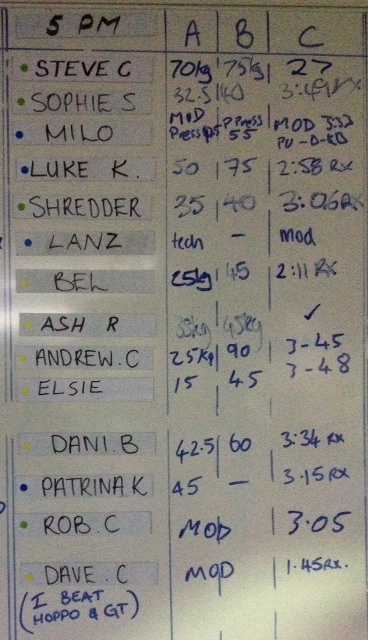 5 PM A B C
STEVE C 70kg 75kg 27
SOPHIE S 32.5 40 3:49 RX
MILO MOD Press P Press 55 MOD 3:32
PU-D-KD
LUKE K. 50 75 2:58 RX
SHREDDER 35 40 3:06 RX
LANZ tech - Mod
BEL 25kg 45 2:11 RX
ASH R 35kg 45kg ✓
ANDREW.C 25kg 90 3-45
ELSIE 15 45 3-48
DANI.B 42.5 60 3:34 RX
PATRINA.K 45 - 3.15 RX
ROB.C MOD 3.05
DAVE.C MOD 1.45 RX.
(I BEAT
HOPPO & GT)